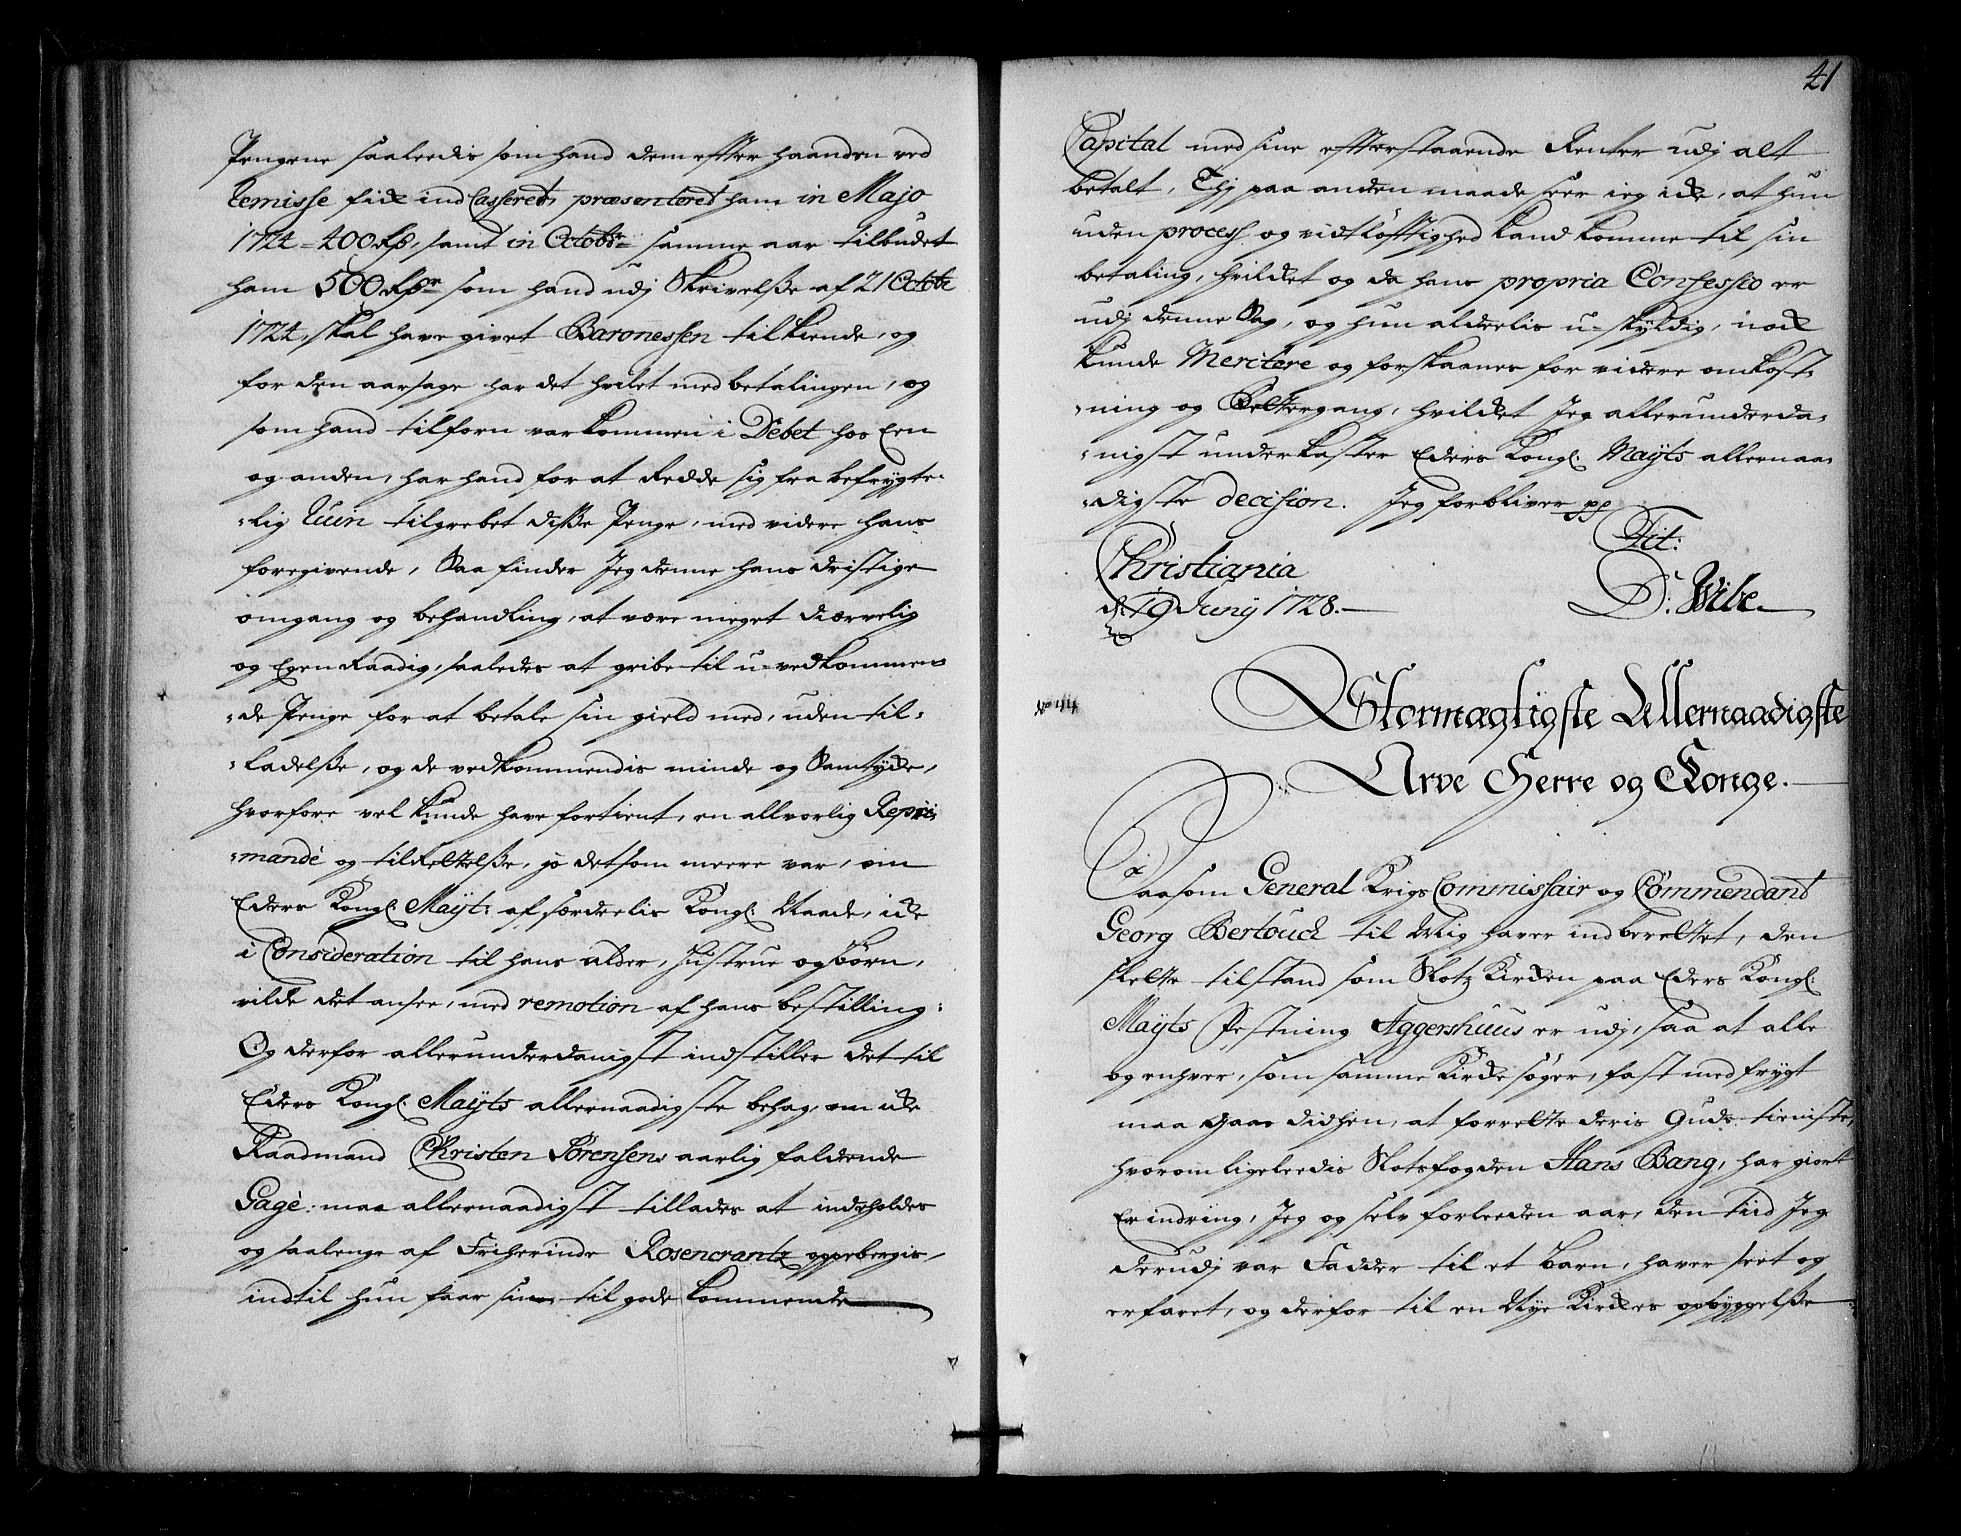 Pengene saaleedis som hand dem efter haanden ved
Remisse fick ind Casseret, præsenteret ham in Majo
1724 = 400 Rdr, samt in Octobr: samme aar tilbudet
ham 500 Rdr som hand udj Skrivelße af 21 Octobr
1724, skal have givet Baronessen tilkiende, og
for den aarsage har det hvilet med betalingen, og
som hand tilforn var kommen i Debet hos Een
og anden, har hand for at Redde sig fra befrygte-
-lig Ruin tilgrebet diße Penge, med videre hans
foregivende, Saa finder Jeg denne hans dristige
omgang og behandling, at være meget diærvelig
og Egenraadig, saaledes at gribe til u-vedkommen-
-de Penge for at betale sin gield med, uden til-
-ladelße, og de vedkommendis minde og Samtycke,
hvorfore vel kunde have fortient, en allvorlig Repri-
-mande og tilrettelße, jo det som meere var, om
Eders Kongl: Mayt: af særdeelis Kongl: Naade, icke
i Consideration til hans alder, Hustrue og børn,
vilde det ansee, med remotion af hans bestilling:
Og derfor allerunderdanigst indstiller det til
Eders Kongl: Mayts allernaadigste behag, om icke
Raadmand Christen Sørensens aarlig faldende
Gage: maa allernaadigst tillades at indeholdes
og saalenge af Friherinde Rosencrantz oppebergis,
indtil hun faar sin til gode kommende
41
Capital med sine efterstaaende Renter udj alt
betalt, Thj paa anden maade seer ieg icke, at hun
uden process og vidtløftighed kand komme til sin
betaling, hvilcket og da hans propria Confessio er
udj denne Sag, og hun alderlis u-skyldig, nock
kunde Meritere og forskaanes for videre omkost-
-ning og Rettergang, hvilcket Jeg allerunderda-
-nigst underkaster Eders Kongl: Mayts allernaa-
-digste decision. Jeg forbliver pp
Tit:
Christiania
d: 19 Junij 1728.
D: Wibe
No 44
Stormægtigste Allernaadigste
Arve Herre og Konge.
Saasom General Krigs Commissair og Commendant
Georg Bertouch til Mig haver indberettet, den
slette tilstand som Slotz Kircken paa Eders Kongl:
Mayts Festning Aggershuus er udj, saa at alle
og enhver, som samme Kircke søger, fast med frygt
maa gaae didhen, at forrette deris Guds-tieniste,
hvorom ligeleedis Slotsfogden Hans Bang, har giort
Erindring, Jeg og selv forleeden aar, den tiid Jeg
derudj var Fadder til et barn, haver seet og
erfaret, og derfor til en Nye Kirckes opbyggelße